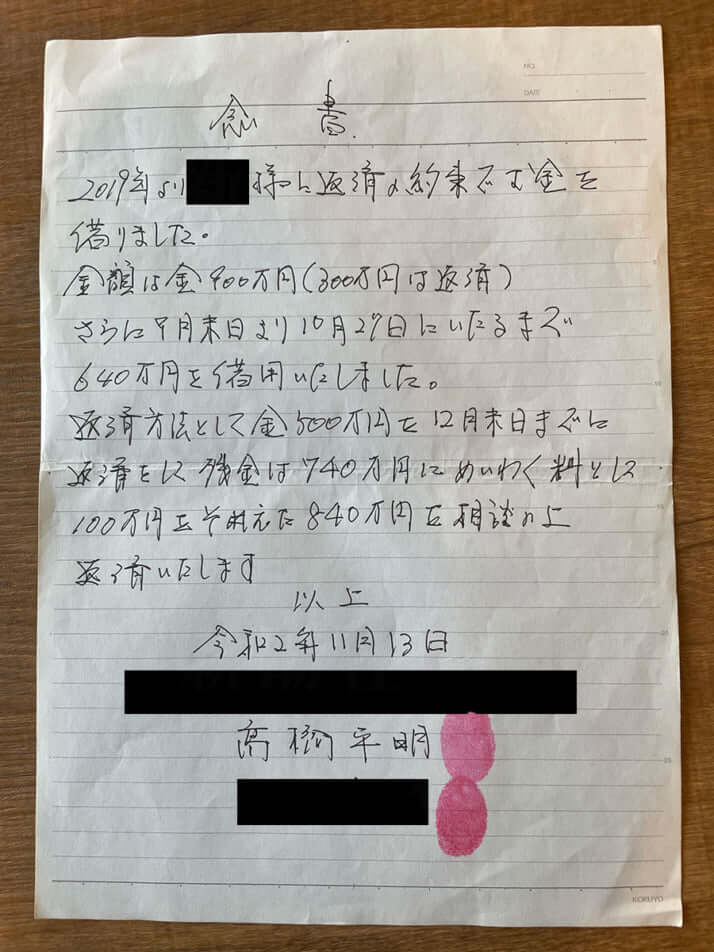 NO.
DATE
念書
2019年より 様から返済の約束でお金を
借りました。
金額は金900万円(300万円は返済)
さらに9月末日より10月27日にいたるまで
640万円を借用いたしました。
返済方法として金500万円を12月末日までに
返済をして残金は740万円にめいわく料として
100万円をそれえた840万円を相談の上
返済いたします
以上
令和2年11月13日
高橋平明
KOKUYO